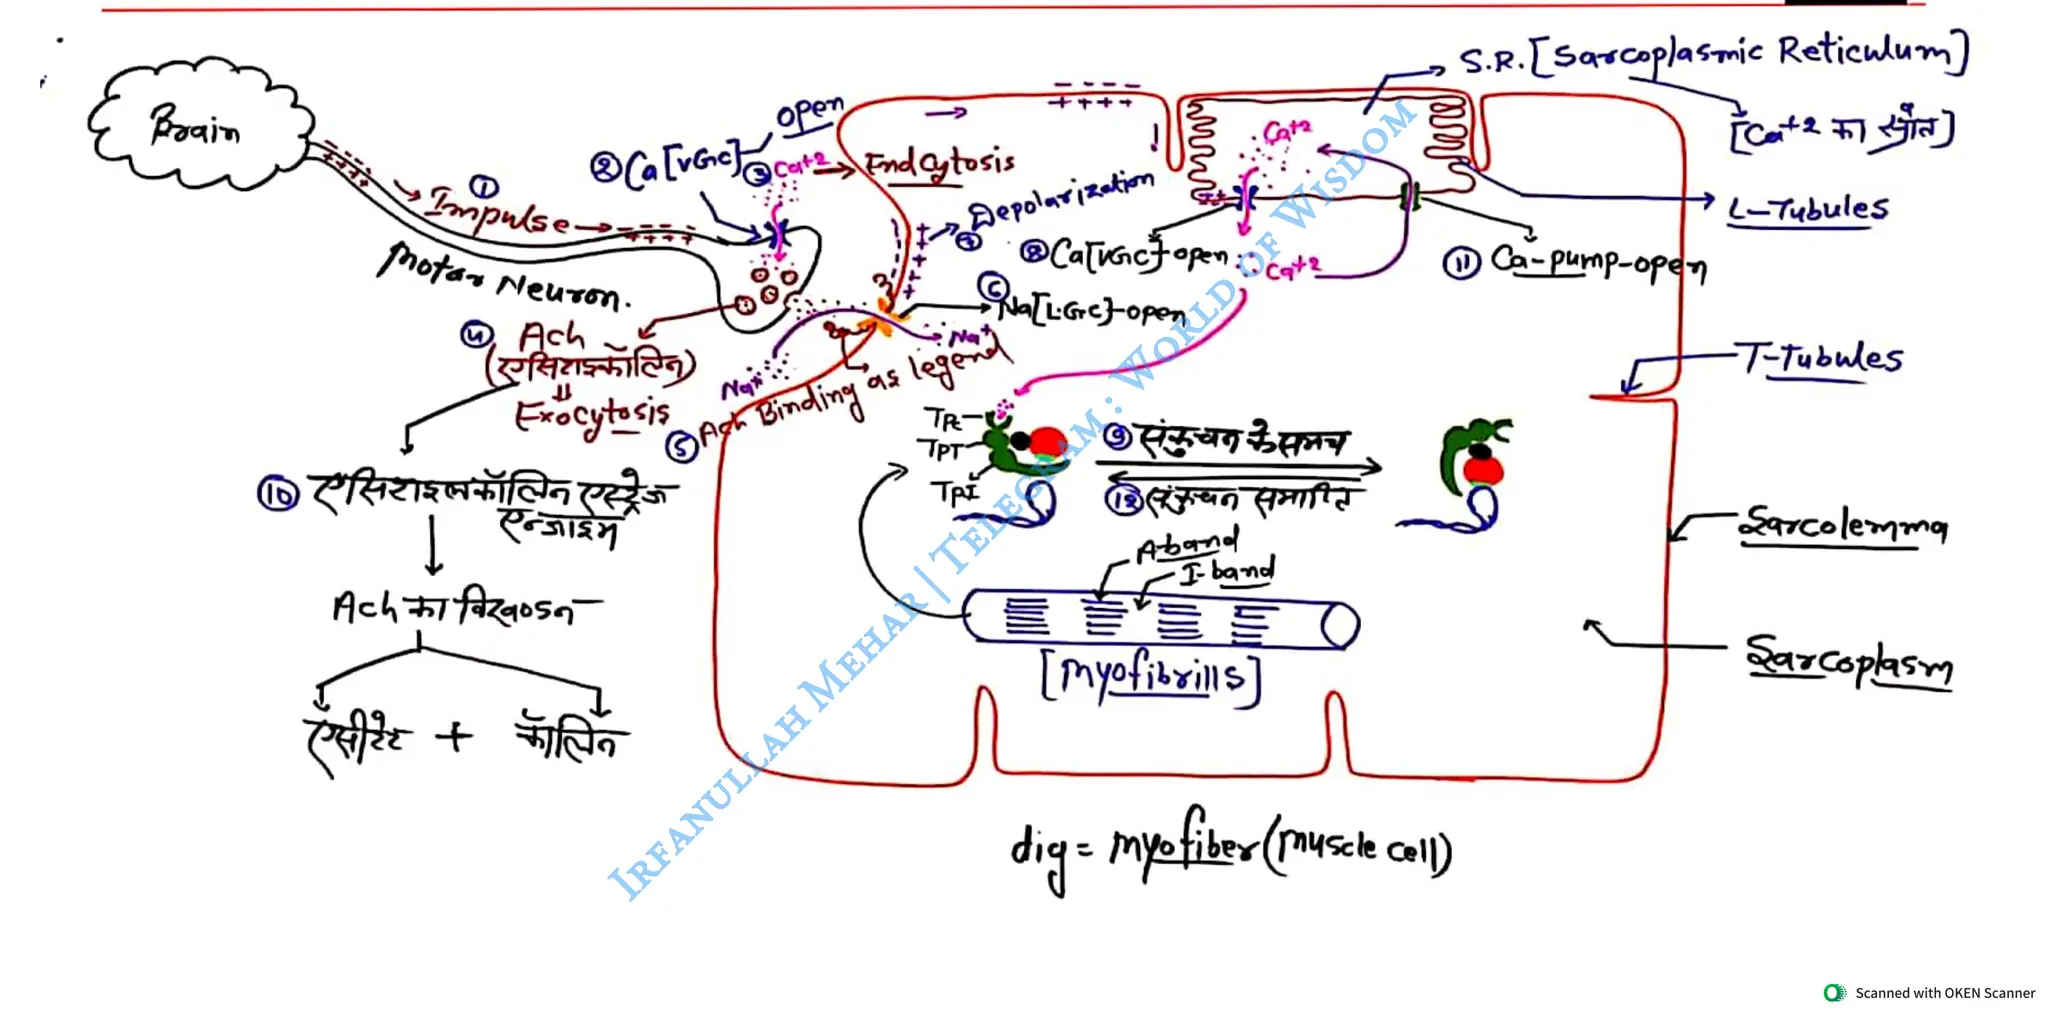 Brain
① Impulse
Motar Neuron.
② Ca[VGrC]
open
③ Ca+2 → Endcytosis
④ Ach
(एसिटाइकॉलिन)
Exocytosis
⑤ Ach Binding as legend
Na+
Na+
⑥ Na[LGrC]-open
Depolarization
S.R. [Sarcoplasmic Reticulum]
[Ca+2 का स्त्रोत]
Ca+2
L-Tubules
⑧ Ca[VGrC]-open
Ca+2
⑪ Ca-pump-open
T-Tubules
TPC
TPT
TPI
⑨ संकुचन के समय
⑫ संकुचन समाप्ति
⑩ एसिटाइलकॉलिन एस्ट्रेज
एन्जाइम
Ach का विखण्डन
एसीटेट + कॉलिन
A-band
I-band
[Myofibrills]
Sarcolemma
Sarcoplasm
dig = myofiber (muscle cell)
Irfanullah Mehar | Telegram : World of Wisdom
Scanned with OKEN Scanner